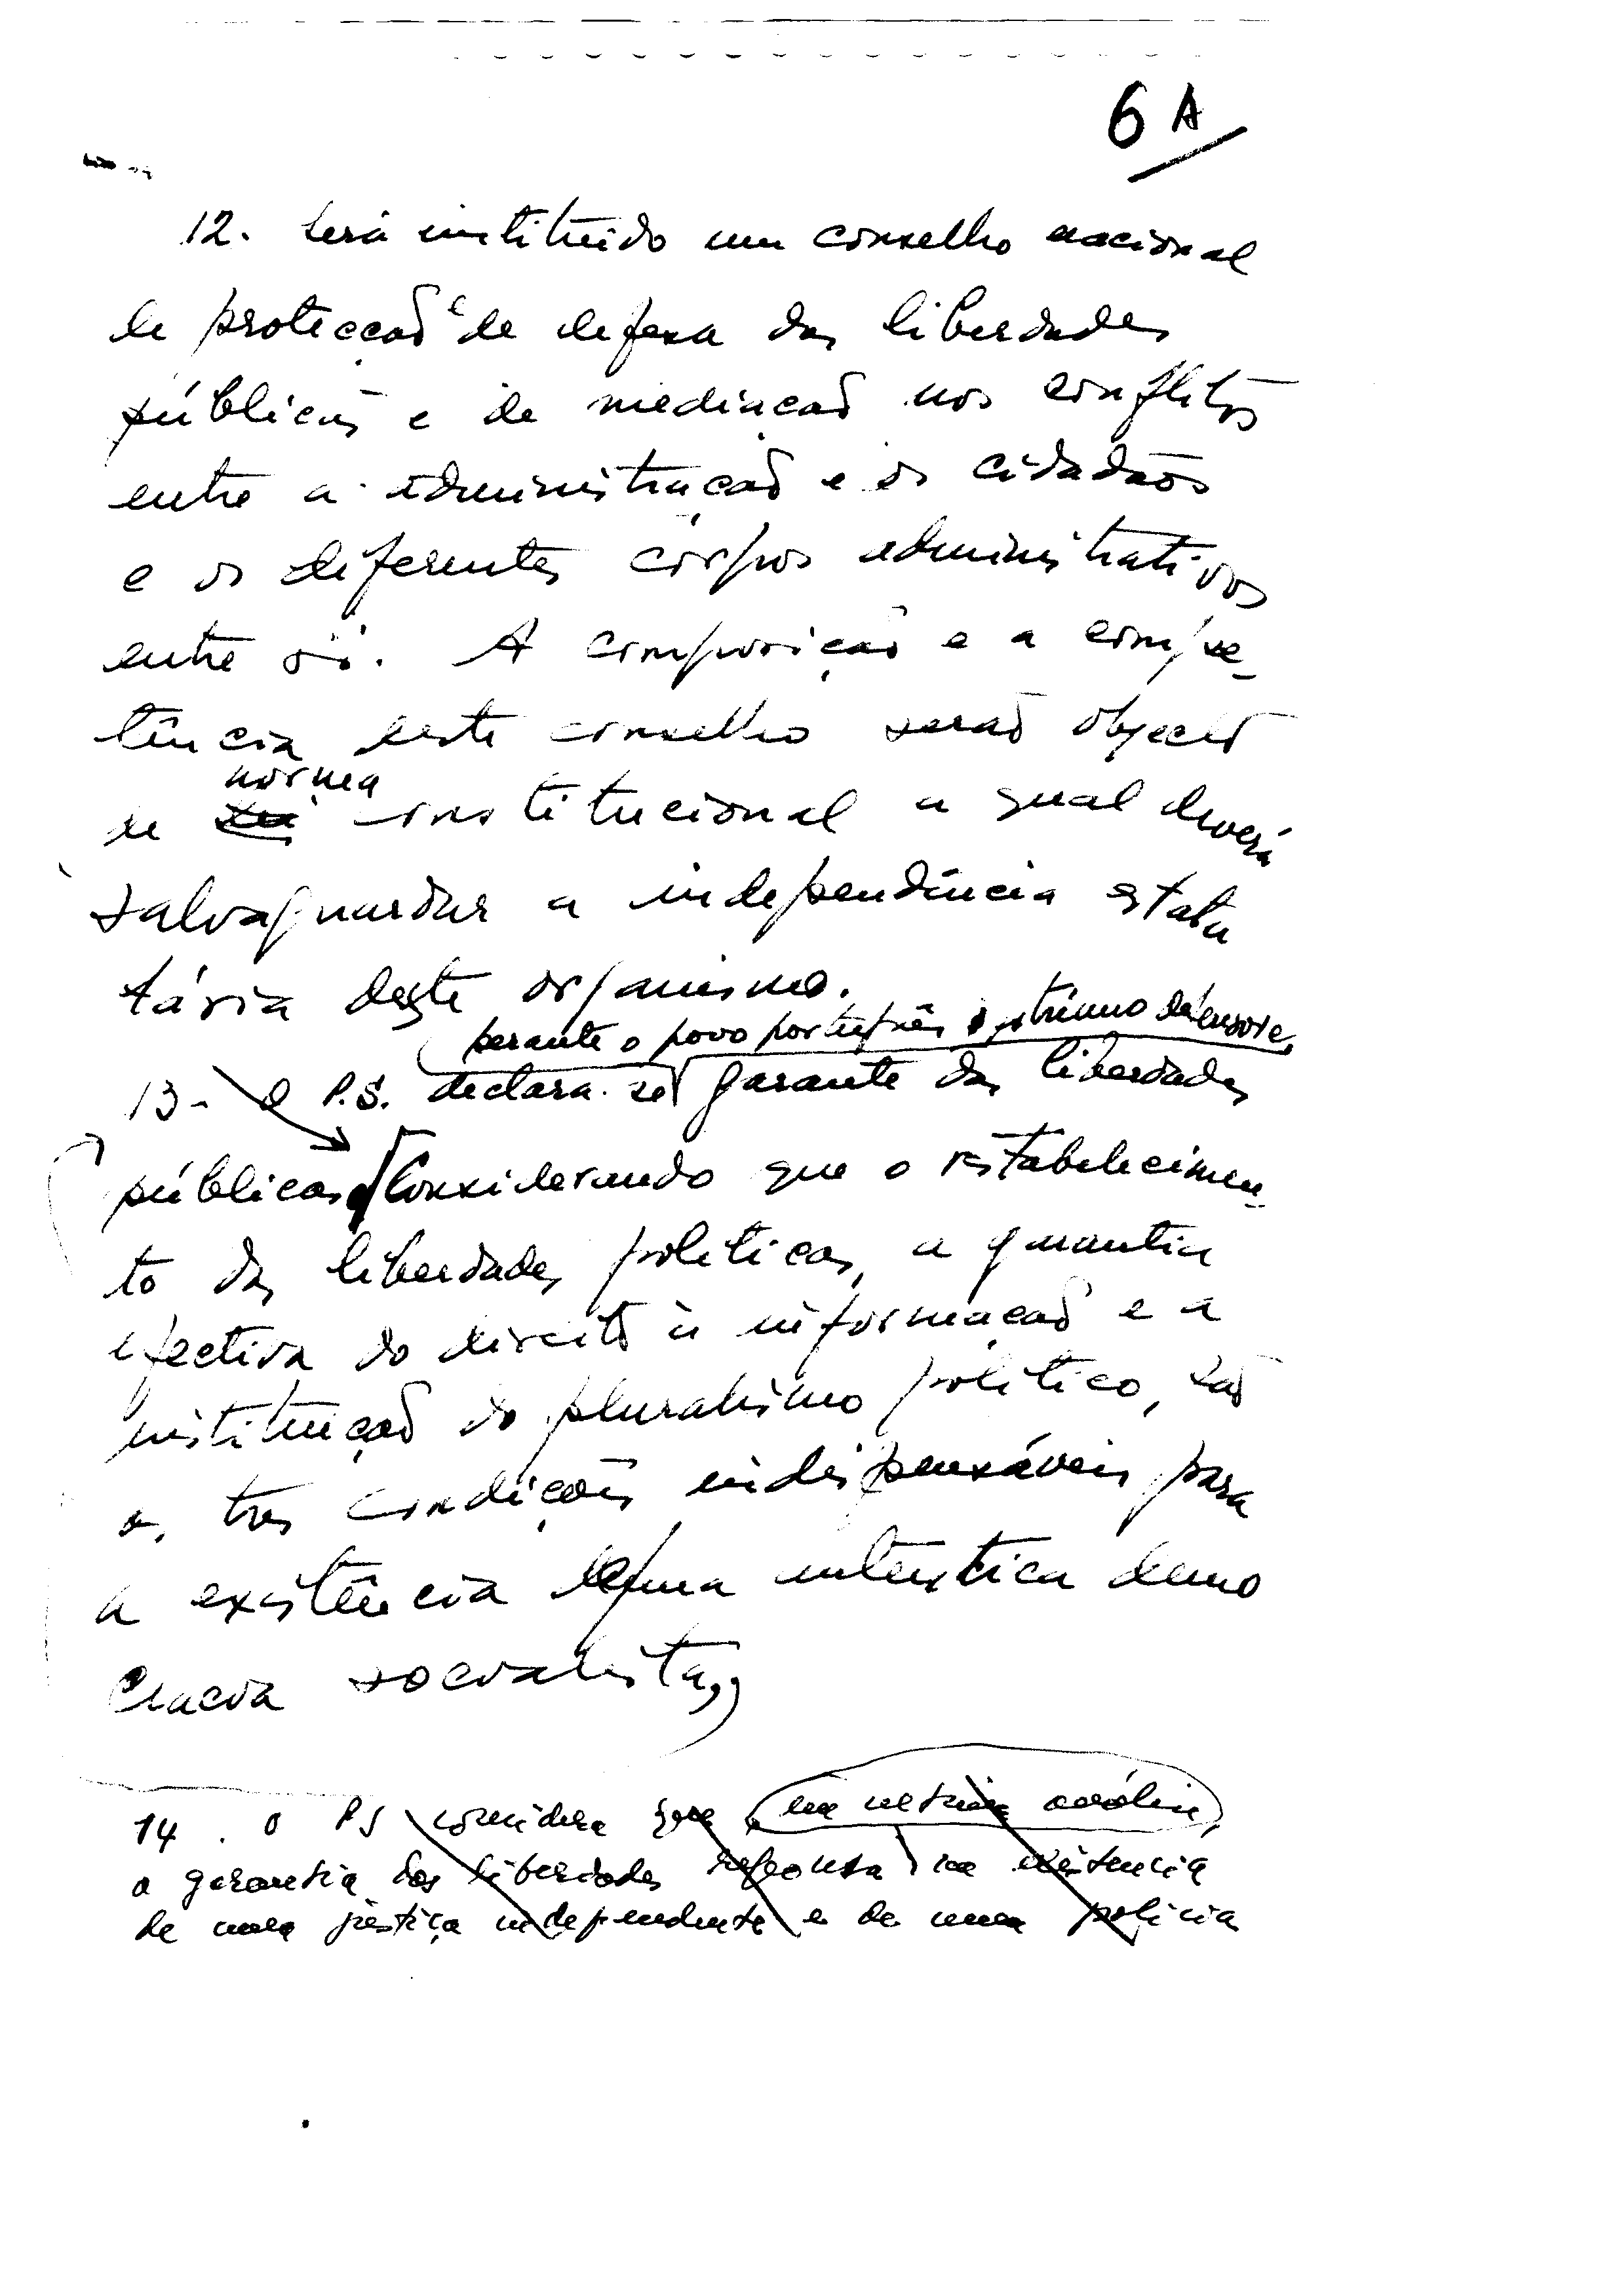 6 A
12. Será instituido um conselho nacional
de protecção e de defesa das liberdades
públicas e de mediação nos conflitos
entre a administração e os cidadãos
e os diferentes corpos administrativos
entre si. A composição e a compe-
tência deste conselho serão objecto
norma
de lei constitucional a qual deverá
salvaguardar a independência estatu
tária deste organismo.
perante o povo português e strénuo defensor
13- O P.S. declara-se garante das liberdades
públicas Considerando que o restabelecimen-
to das liberdades politicas, a garantia
efectiva do direito à informação e a
instituição do pluralismo politico, são
as tres condições indispensáveis para
a existência de uma autentica demo
cracia socialista,,
14. O PS considera que em ultima análise,
a garantia das liberdades repousa na existencia
de uma justiça independente e de uma policia